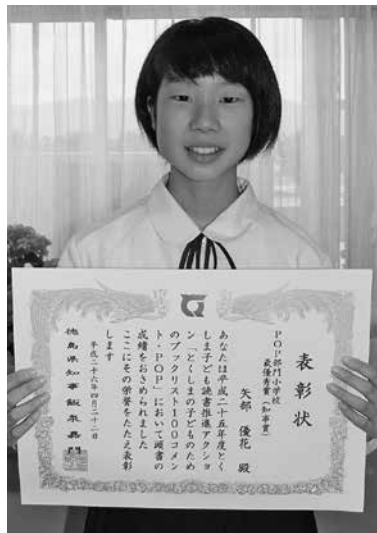 表彰状
POP部門小学校
最優秀賞(知事賞)
矢部 優花 殿
あなたは平成二十五年度とく
しま子ども読書推進アクショ
ン「とくしまの子どものため
のブックリスト100コメン
ト・POP」において頭書の
成績をおさめられました
ここにその栄誉をたたえ表彰
します
平成二十六年四月二十二日
徳島県知事 飯泉嘉門